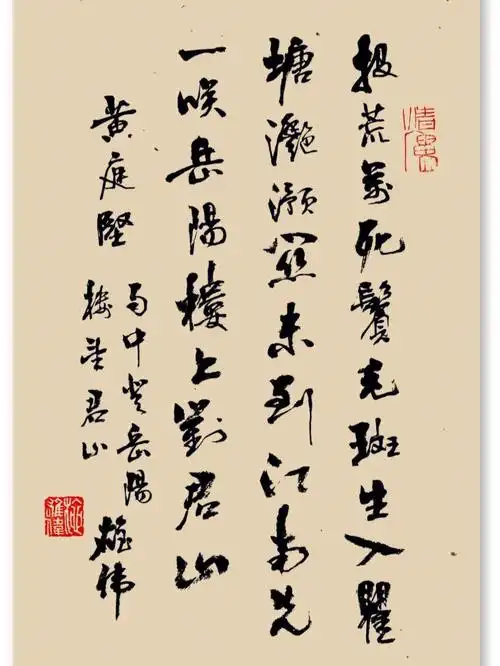 投荒萬死鬢毛斑生入瞿
塘灩澦關未到江南先
一咲岳陽樓上對君山
黄庭堅
雨中登岳陽
樓望君山
雄伟